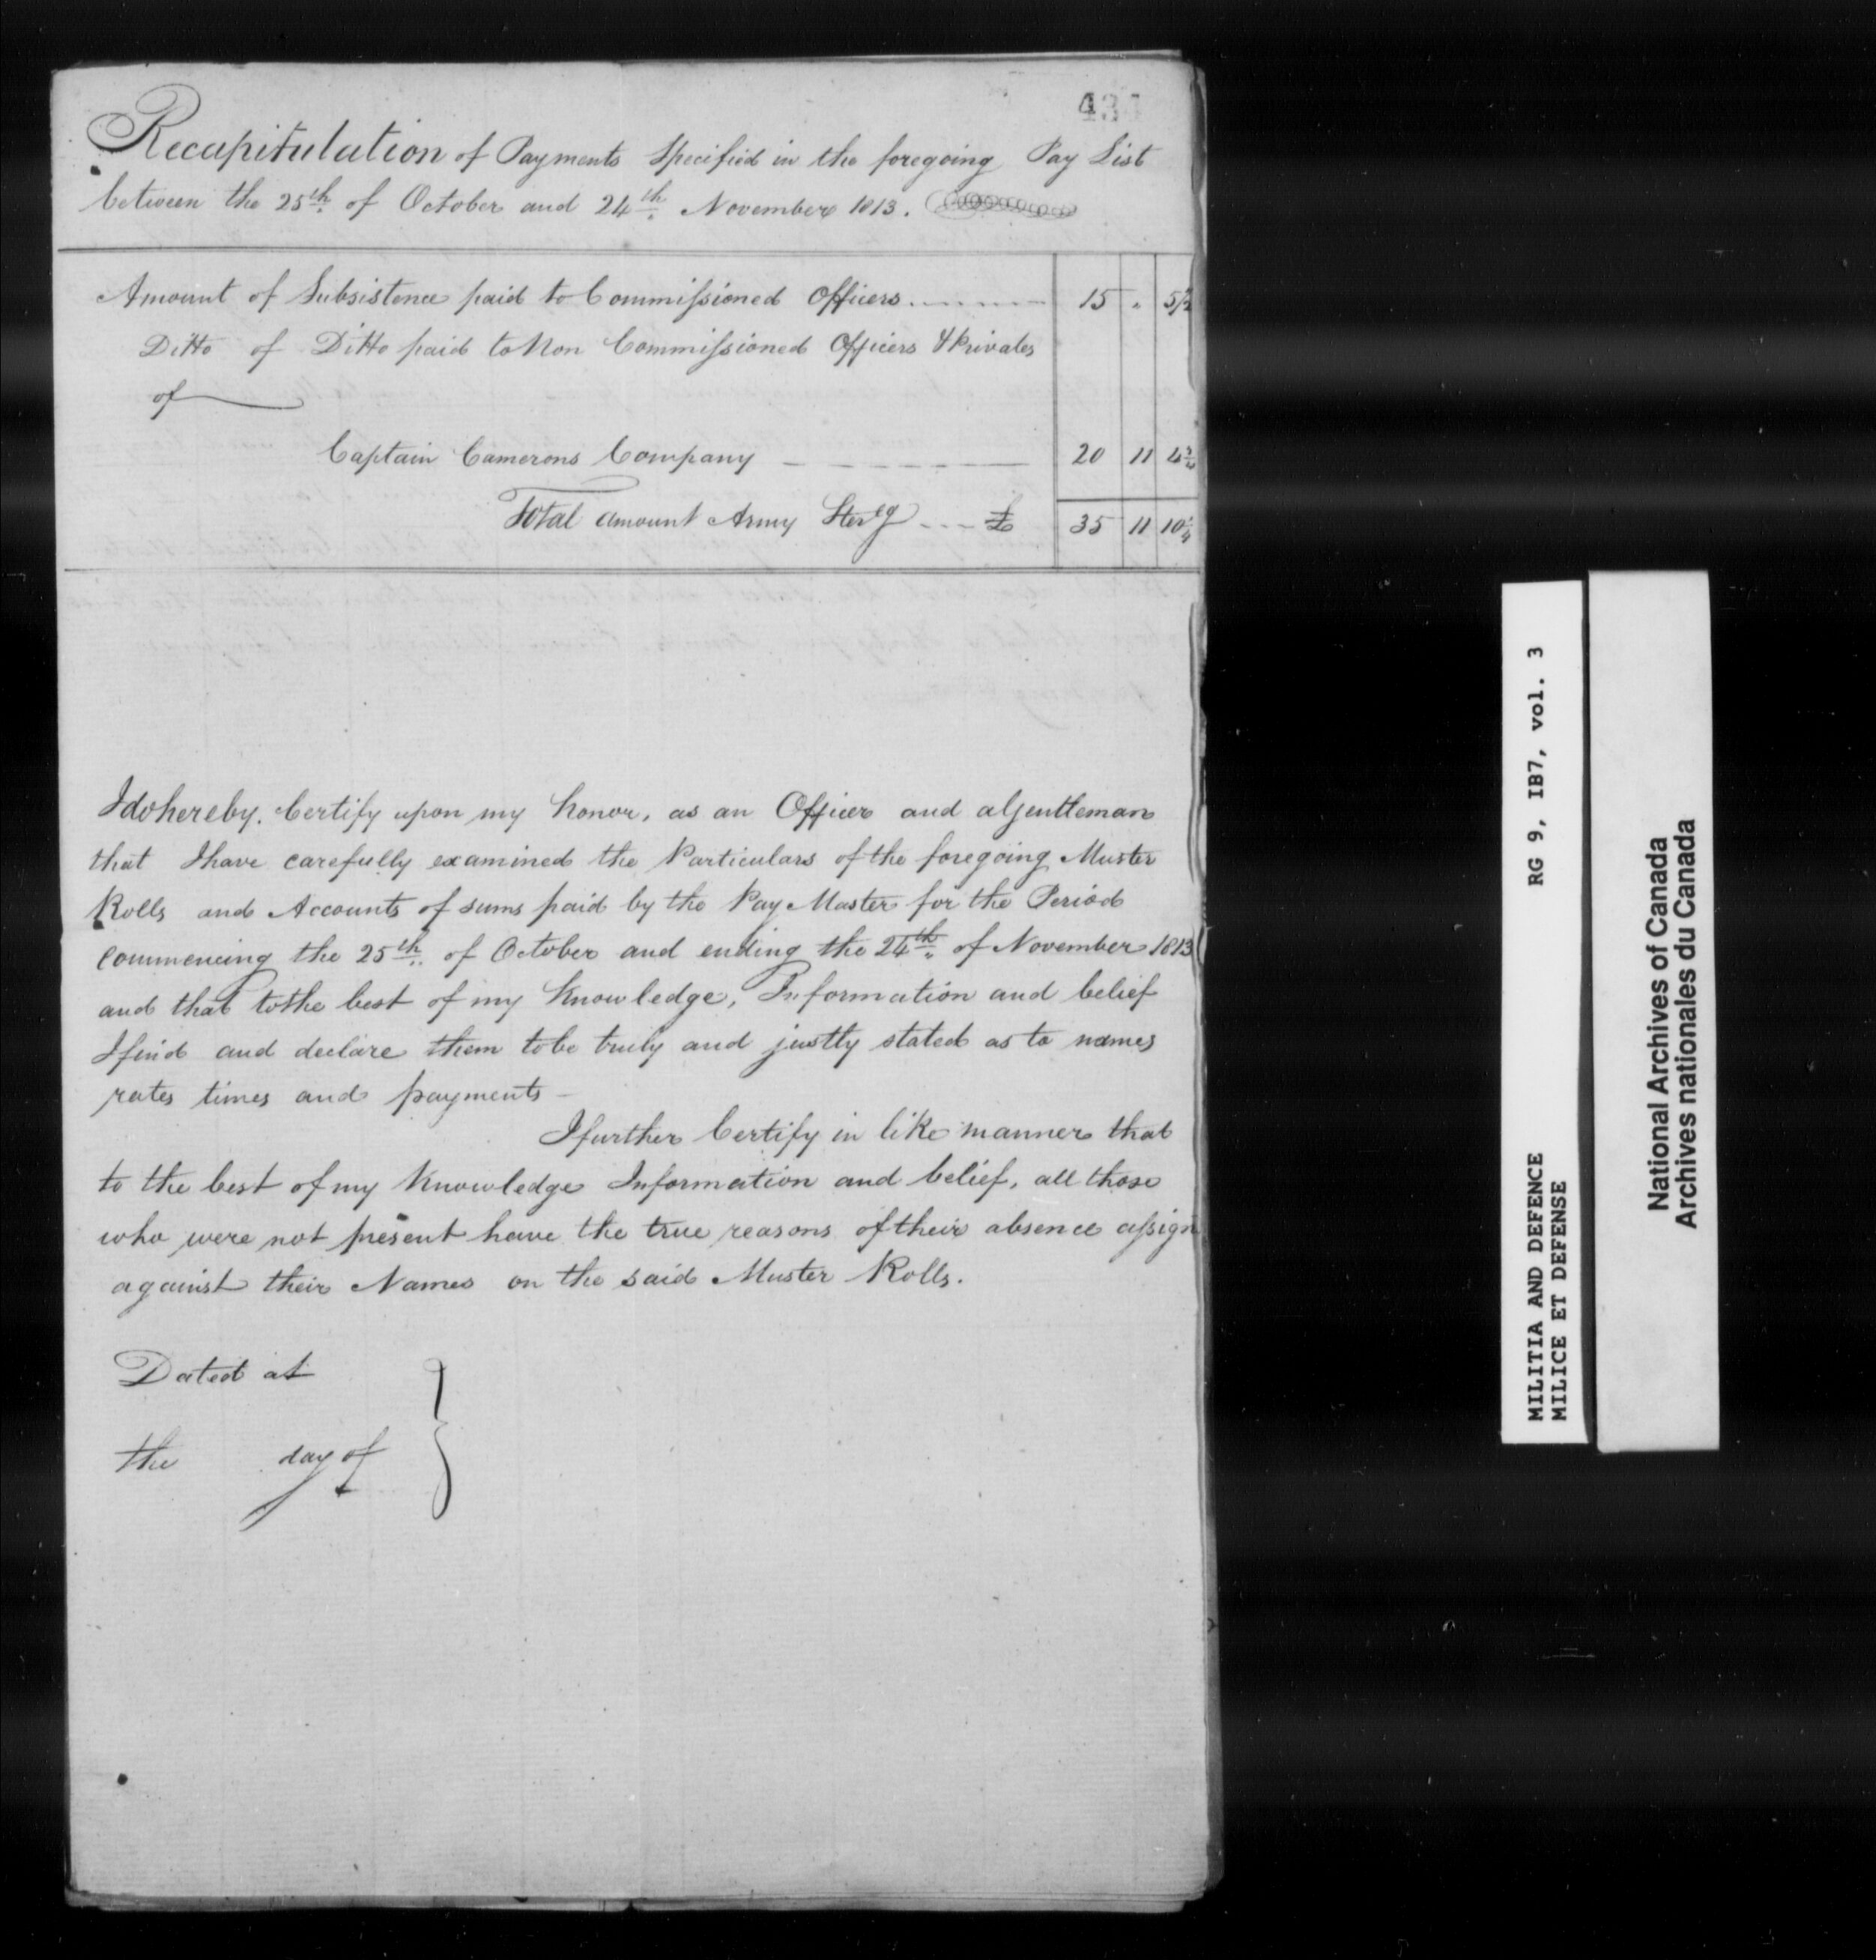 43
Recapitulation of Payments Specified in the foregoing Pay List
between the 25th of October and 24th November 1813.
Amount of Subsistence paid to Commissioned Officers 15 " 5½
Ditto of Ditto paid to Non Commissioned Officers & Privates
of
Captain Camerons Company 20 11 4¾
Total amount Army Sterlg £ 35 11 10¼
I do hereby Certify upon my honor, as an Officer and a Gentleman
that I have carefully examined the Particulars of the foregoing Muster
Rolls and Accounts of sums paid by the Pay Master for the Period
Commencing the 25th of October and ending the 24th of November 1813
and that to the best of my Knowledge, Information and belief
I find and declare them to be truly and justly stated as to names
rates times and payments —
I further Certify in like manner that
to the best of my Knowledge Information and belief, all those
who were not present have the true reasons of their absence assign
against their Names on the said Muster Rolls.
Dated at
the day of
MILITIA AND DEFENCE RG 9, IB7, vol. 3
MILICE ET DEFENSE
National Archives of Canada
Archives nationales du Canada